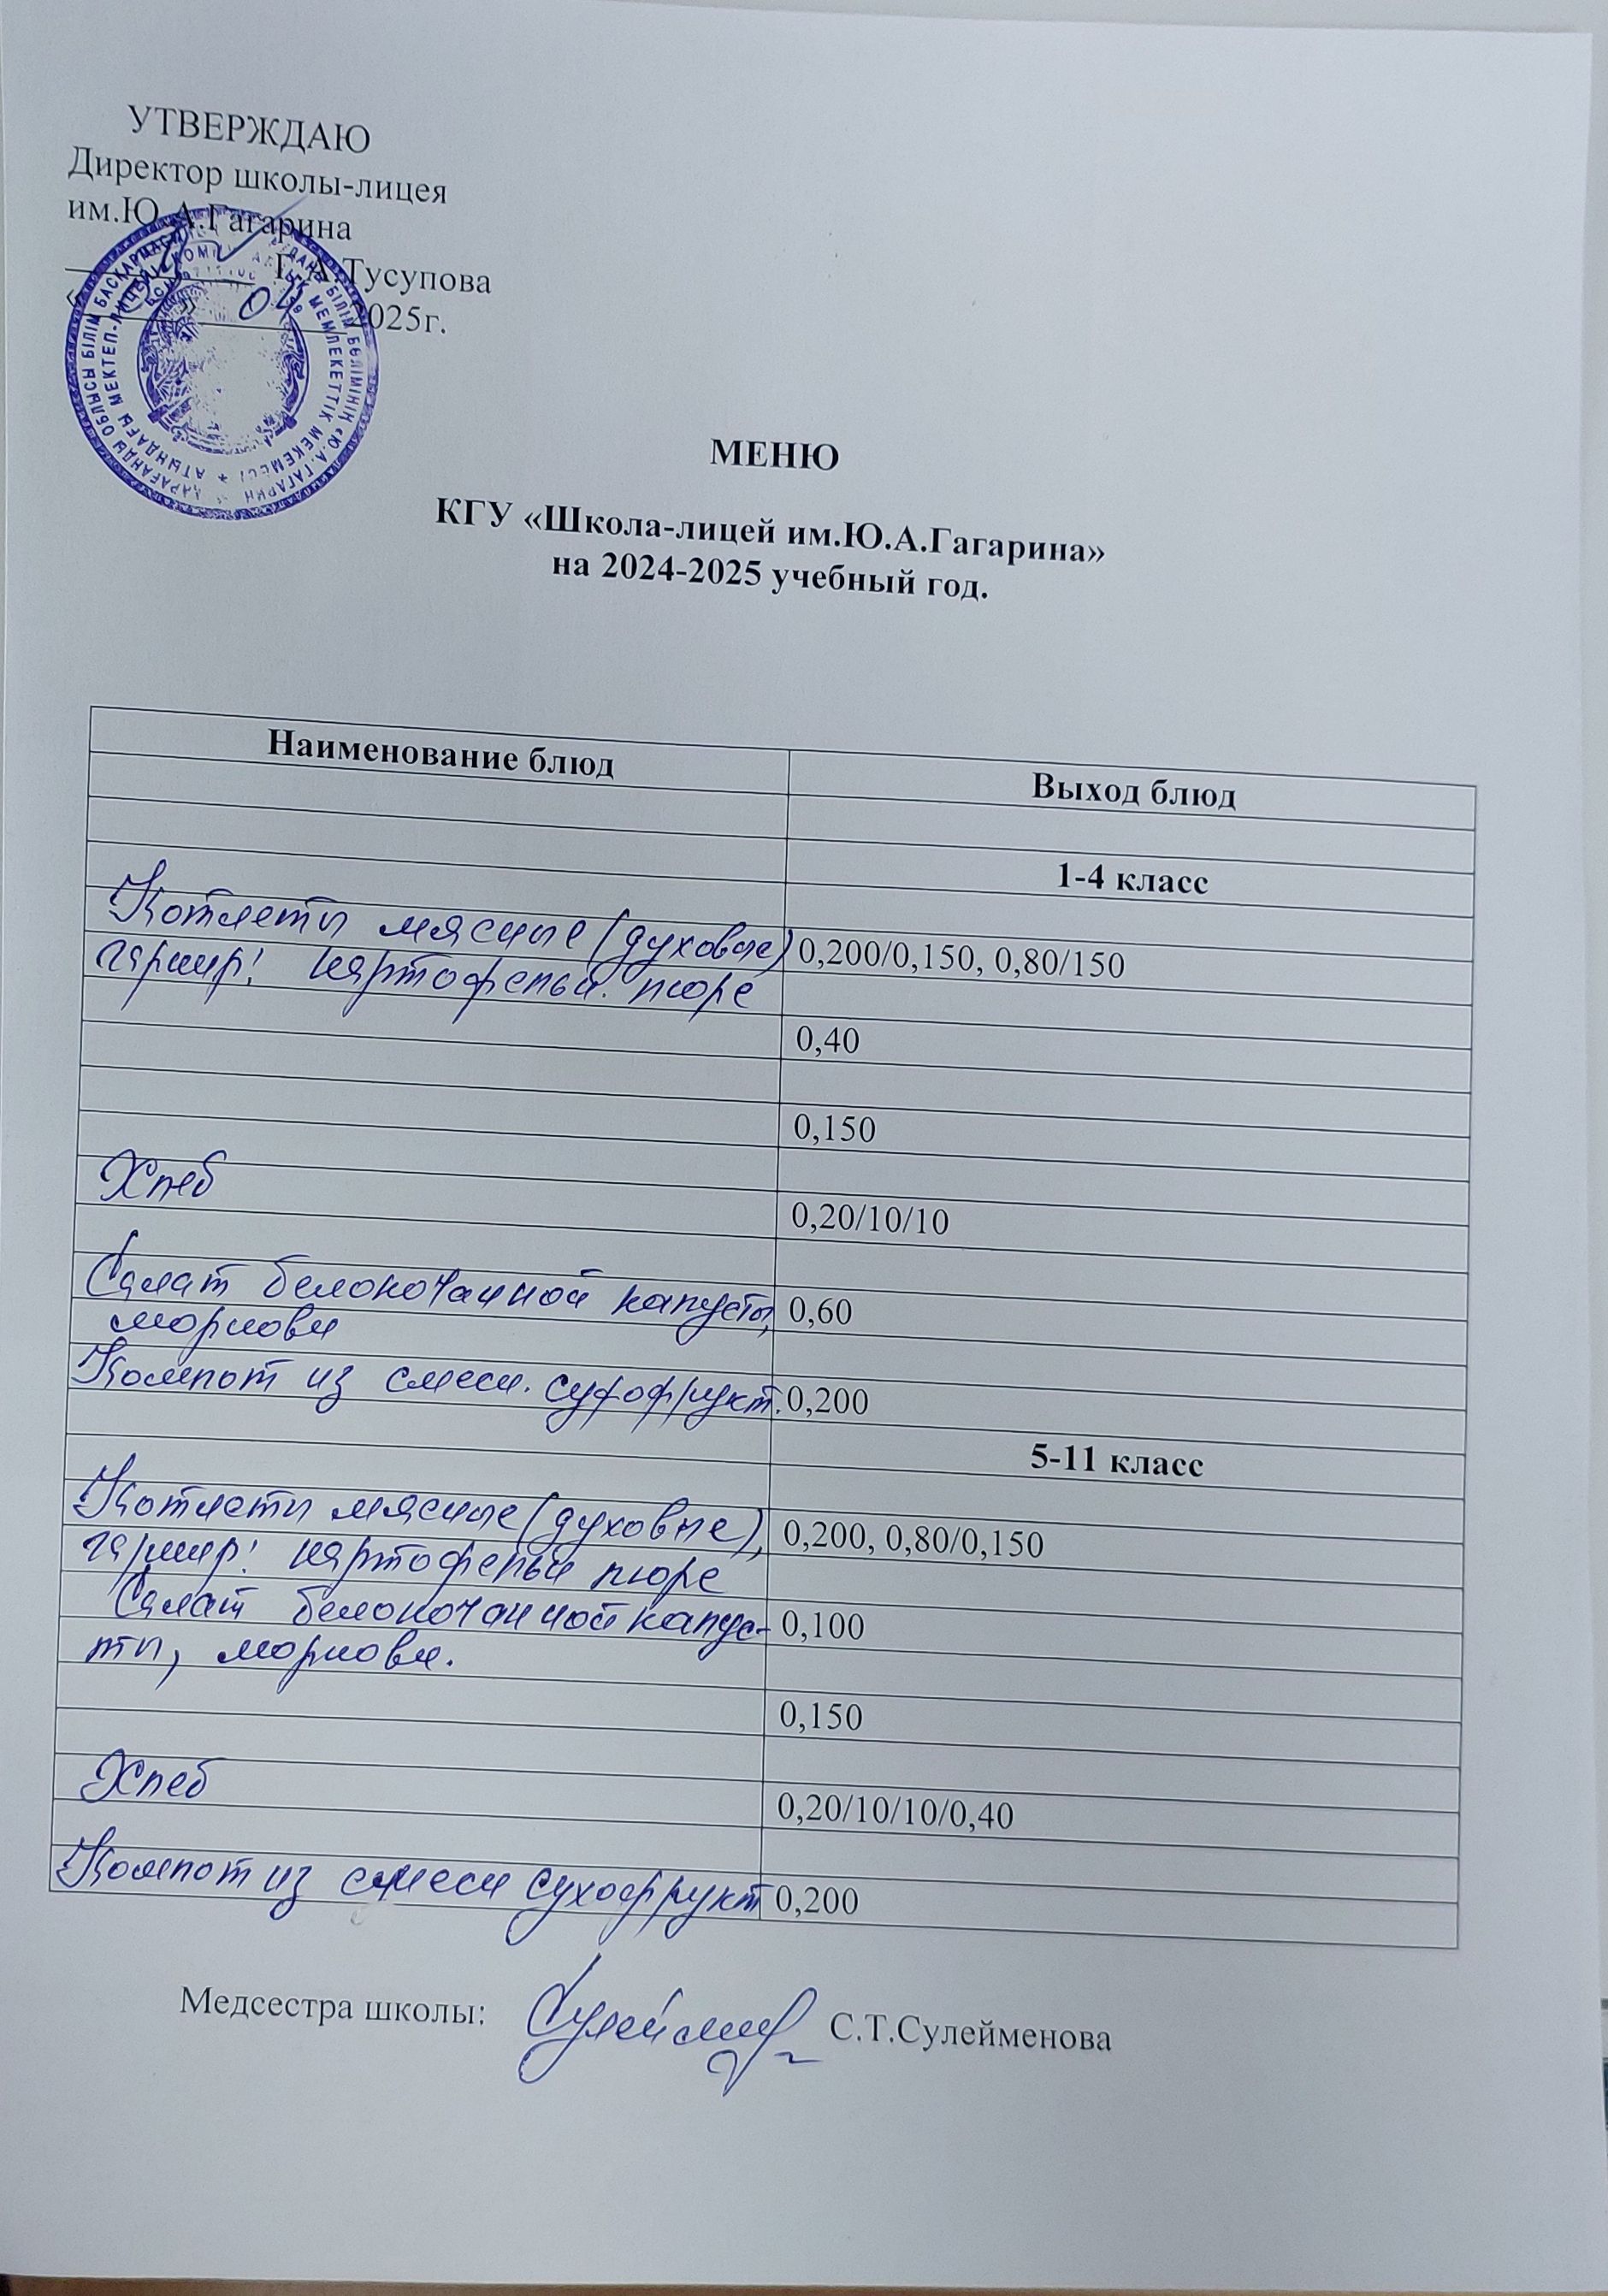 УТВЕРЖДАЮ
Директор школы-лицея
им.Ю.А.Гагарина
Г.А.Тусупова
« » 04 2025г.
МЕНЮ
КГУ «Школа-лицей им.Ю.А.Гагарина»
на 2024-2025 учебный год.
Наименование блюд Выход блюд
1-4 класс
Котлеты мясные (духовые) 0,200/0,150, 0,80/150
гарнир: картофельн. пюре
0,40
0,150
Хлеб 0,20/10/10
Салат белокочанной капусты, 0,60
моркови
Компот из смеси. сухофрукт. 0,200
5-11 класс
Котлеты мясные (духовые), 0,200, 0,80/0,150
гарнир: картофельн пюре
Салат белокочанной капус- 0,100
ты, моркови.
0,150
Хлеб 0,20/10/10/0,40
Компот из смеси сухофрукт 0,200
Медсестра школы: С.Т.Сулейменова